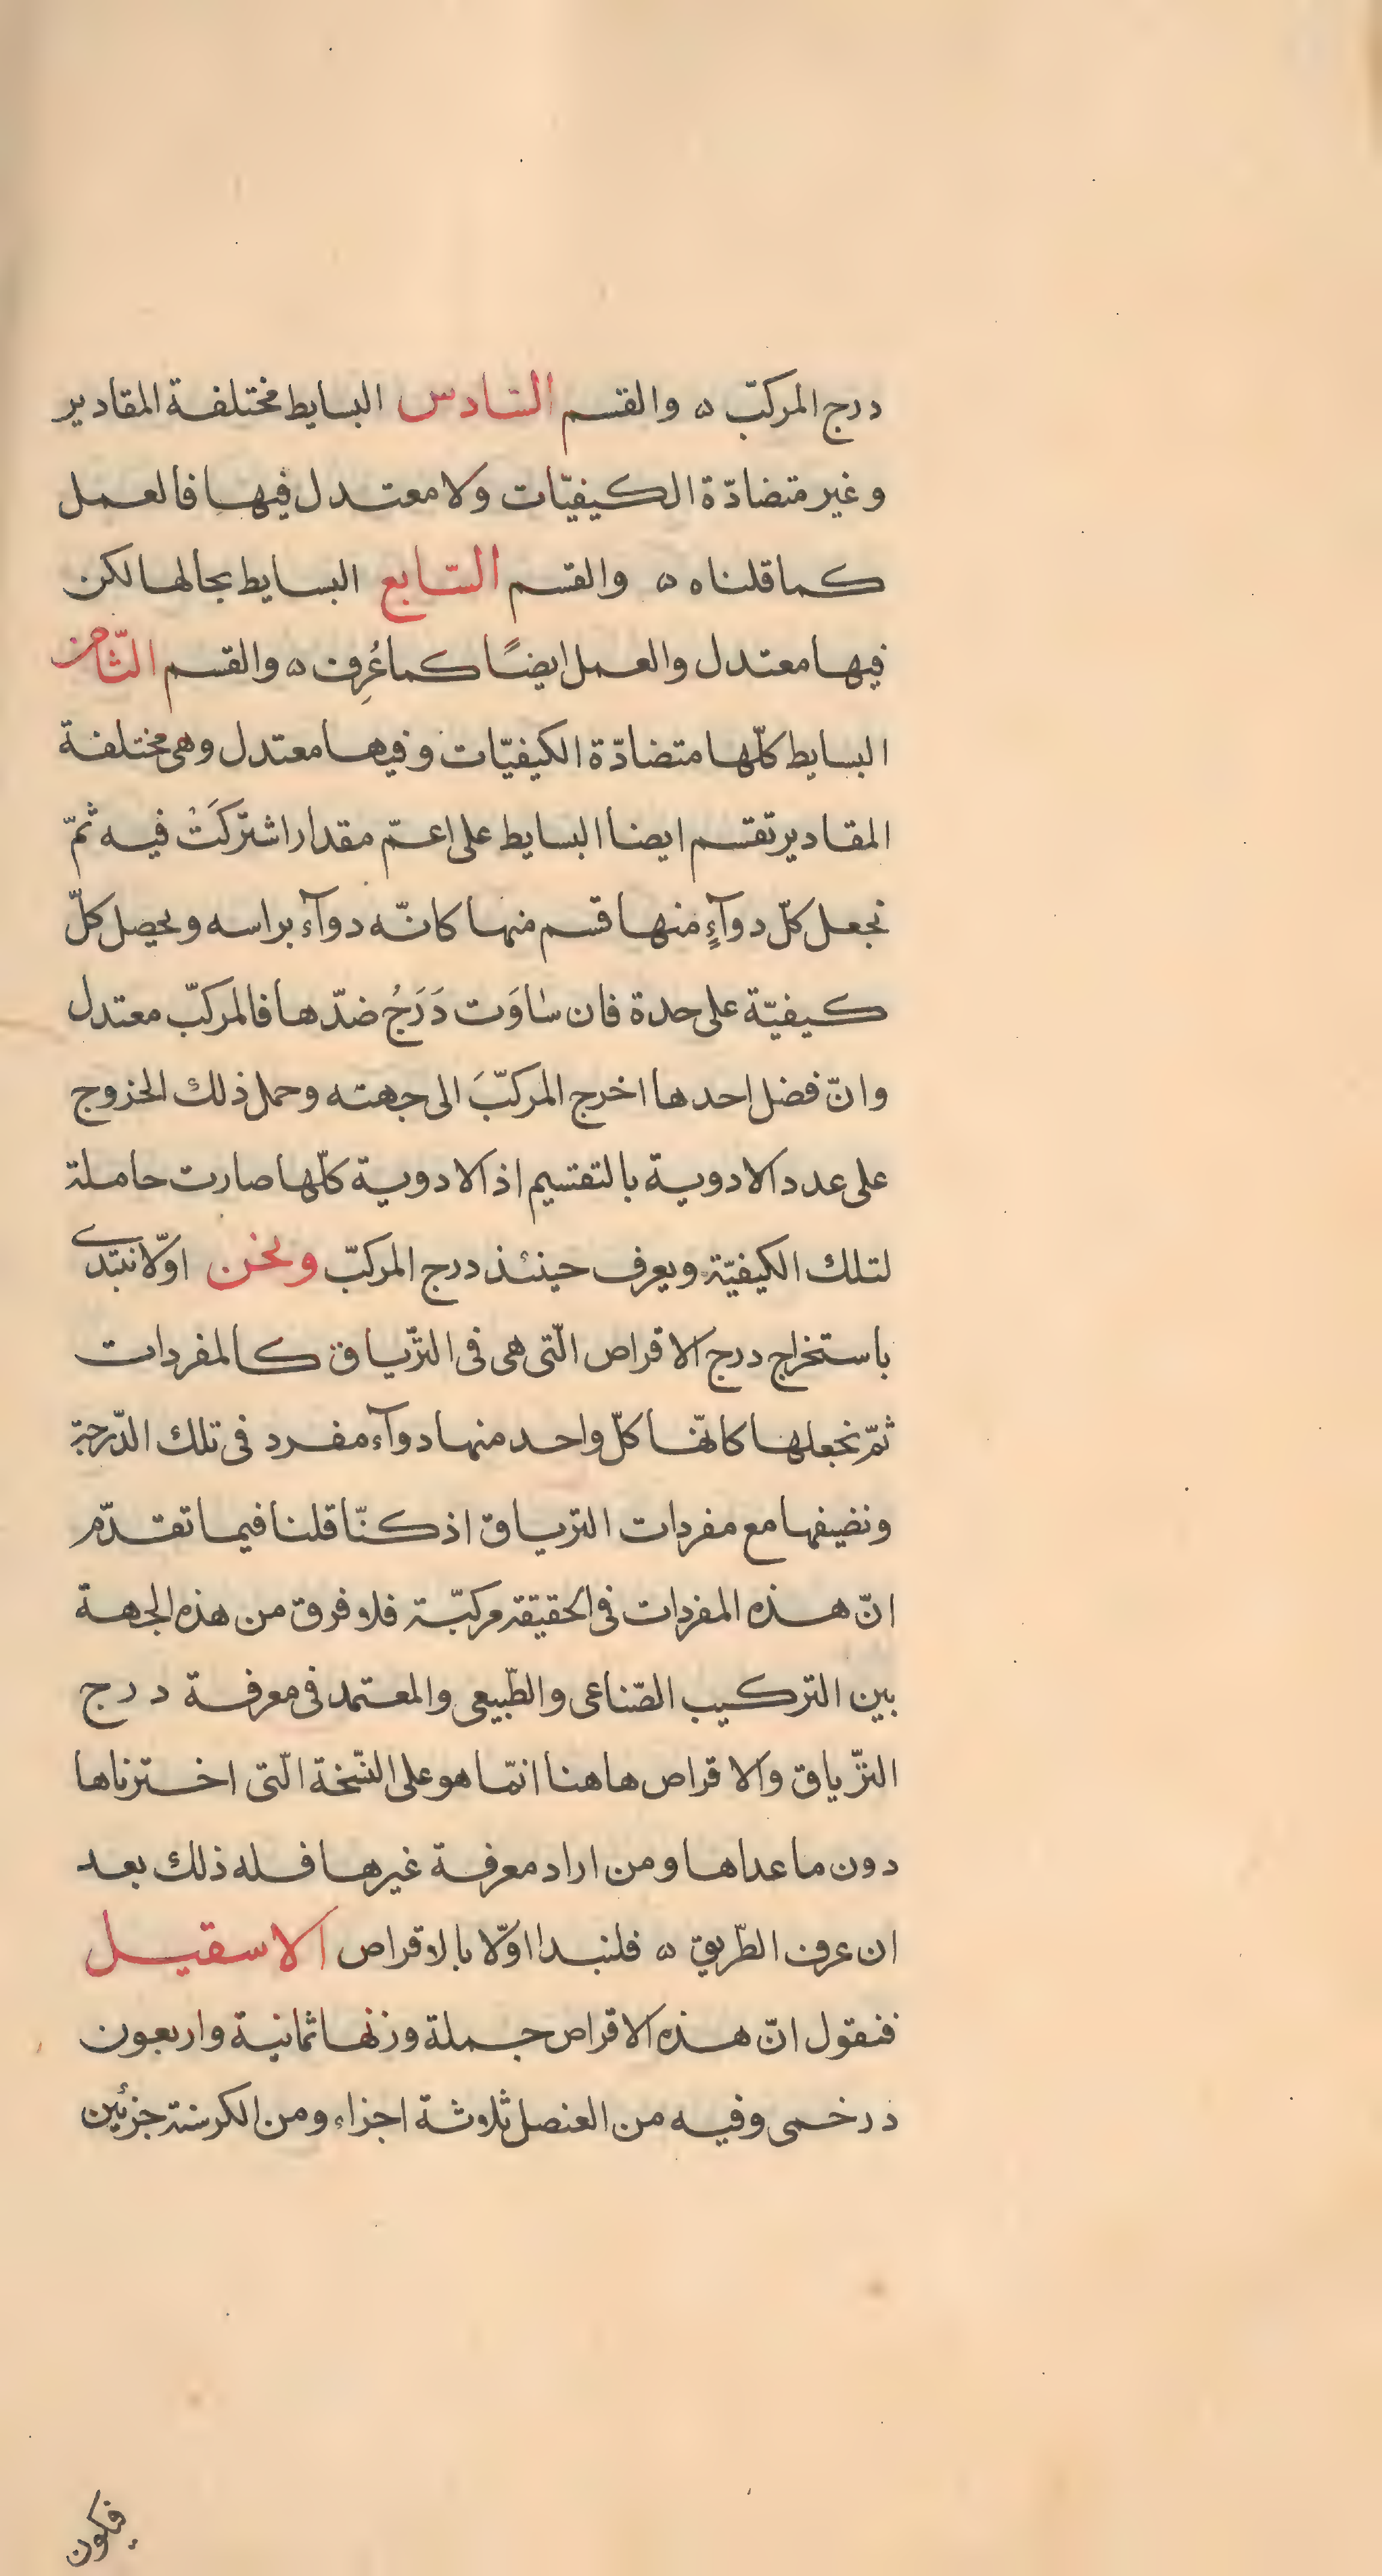 درج المركّب ه والقسم السّادس البسايط مختلفة المقادير
وغير متضادّة الكيفيّات ولا معتدل فيها فالعمل
كما قلناه ه والقسم السّابع البسايط بحالها لكن
فيها معتدل والعمل ايضًا كما عُرِف ه والقسم الثّامن
البسايط كلّها متضادّة الكيفيّات وفيها معتدل وهى مختلفة
المقادير تقسم ايضا البسايط على اعمّ مقدار اشتركَتْ فيه ثمّ
نجعل كلّ دوآءٍ منها قسم منها كانّه دوآء براسه ويحصل كلّ
كيفيّة على حدة فان سٰاوَت دَرَجُ ضدّها فالمركّب معتدل
وانّ فضل احدها اخرج المركّبَ الى جهته وحمل ذلك الخروج
على عدد الادوية بالتقسيم اذ الادوية كلّها صارت حاملة
لتلك الكيفيّة ويعرف حينئذ درج المركّب ونحن اوّلا نبتدى
باستخراج درج الاقراص الّتى هى فى التّرياق كالمفردات
ثمّ نجعلها كانّها كلّ واحد منها دوآء مفرد فى تلك الدّرجة
ونضيفها مع مفردات الترياق اذ كنّا قلنا فيما تقدّم
انّ هذه المفردات فى الحقيقة مركبّة فلا فرق من هذه الجهة
بين التركيب الصّناعى والطّبيعى والمعتمد فى معرفة درج
التّرياق والاقراص هاهنا انمّا هو على النّسخة الّتى اخترناها
دون ما عداها ومن اراد معرفة غيرها فله ذلك بعد
ان عرف الطّريق ه فلنبدا اوّلا بالاقراص الاسقيل
فنقول انّ هذه الاقراص جملة وزنها ثمانية واربعون
درخمى وفيه من العنصل ثلاثة اجزاء ومن الكرسنة جزئين
فيكون